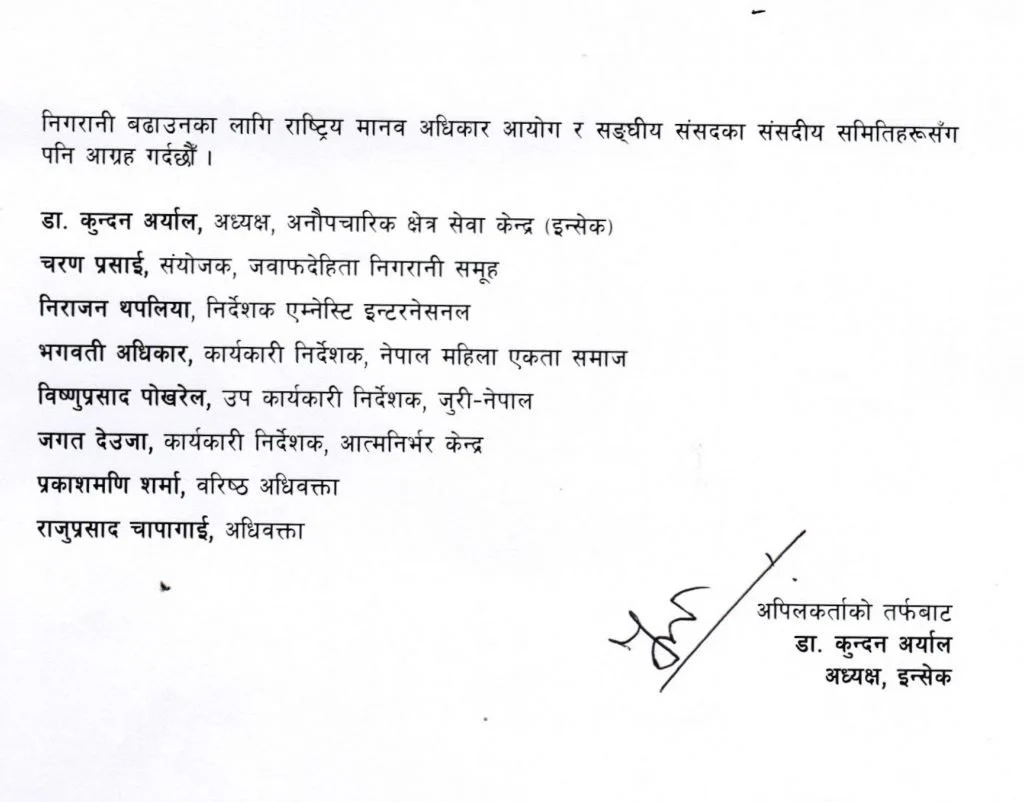 निगरानी बढाउनका लागि राष्ट्रिय मानव अधिकार आयोग र सङ्घीय संसदका संसदीय समितिहरूसँग
पनि आग्रह गर्दछौँ ।
डा. कुन्दन अर्याल, अध्यक्ष, अनौपचारिक क्षेत्र सेवा केन्द्र (इन्सेक)
चरण प्रसाई, संयोजक, जवाफदेहिता निगरानी समूह
निराजन थपलिया, निर्देशक एम्नेस्टि इन्टरनेसनल
भगवती अधिकार, कार्यकारी निर्देशक, नेपाल महिला एकता समाज
विष्णुप्रसाद पोखरेल, उप कार्यकारी निर्देशक, जुरी-नेपाल
जगत देउजा, कार्यकारी निर्देशक, आत्मनिर्भर केन्द्र
प्रकाशमणि शर्मा, वरिष्ठ अधिवक्ता
राजुप्रसाद चापागाई, अधिवक्ता
अपिलकर्ताको तर्फबाट
डा. कुन्दन अर्याल
अध्यक्ष, इन्सेक